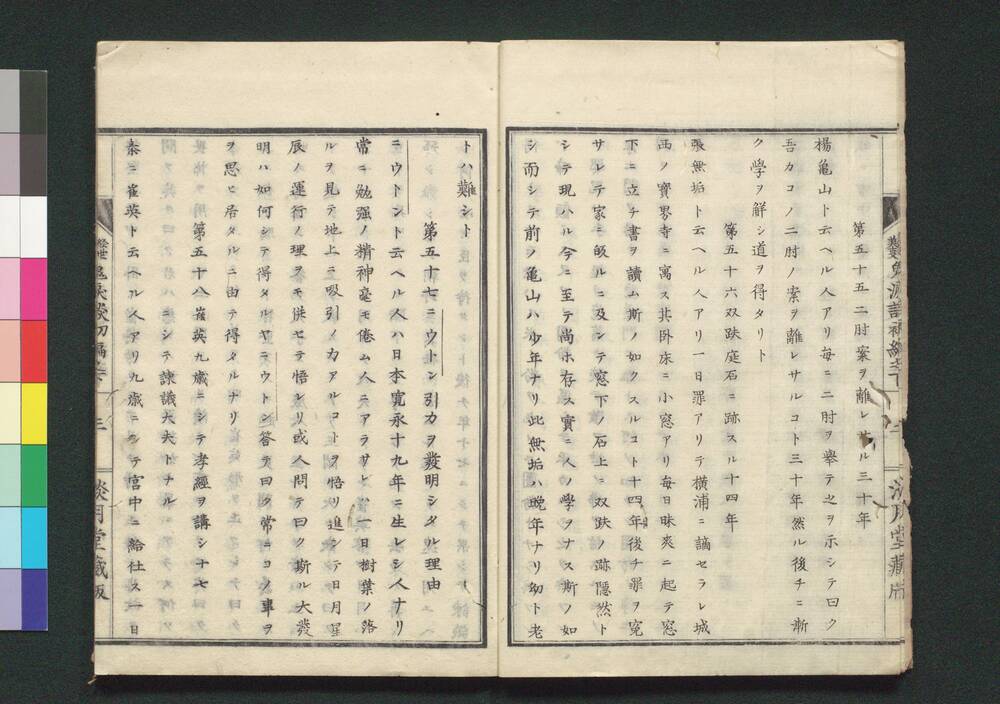 第五十五 二肘案ヲ離レサル三十年
楊亀山ト云ヘル人アリ毎ニ二肘ヲ擧テ之ヲ示シテ曰ク
吾カコノ二肘ノ案ヲ離レサルコト三十年然ル後チニ漸
ク學ヲ解シ道ヲ得タリト
第五十六 双趺庭石ニ跡スル十四年
張無垢ト云ヘル人アリ一日罪アリテ横浦ニ謫セラレ城
西ノ寶界寺ニ寓ス其卧床ニ小窓アリ毎日昧爽ニ起テ窓
下ニ立チ書ヲ讀ム斯ノ如クスルコト十四年後チ罪ヲ寃
サレテ家ニ皈ルニ及ンテ窓下ノ石上ニ双趺ノ跡隠然ト
シテ現ハル今ニ至テ尚ホ存ス實ニ人ノ學ヲナス斯ノ如
シ而シテ前ノ亀山ハ少年ナリ此無垢ハ晩年ナリ幼ト老
トハ難シト
第五十七 ニウトン引力ヲ發明シタル理由
ニウトント云ヘル人ハ日本寛永十九年ニ生レシ人ナリ
常ニ勉强ノ精神毫モ倦ム人ニアラサレハ一日樹葉ノ落
ルヲ見テ地上ニ吸引ノ力アルコトヲ悟リ進ンテ日月星
辰ノ運行ノ理ヲモ併セテ悟レリ或人問テ曰ク斯ル大發
明ハ如何シテ得タルヤニウトン答テ曰ク常ニコノ事ヲ
ヲ思ヒ居タルニ由テ得タルナリ
第五十八 崔英九歳ニシテ孝經ヲ講シ十七
ニシテ諌議大夫トナル
秦ニ崔英ト云ヘル人アリ九歳ニシテ宮中ニ給仕ス一日
三 談月堂藏版